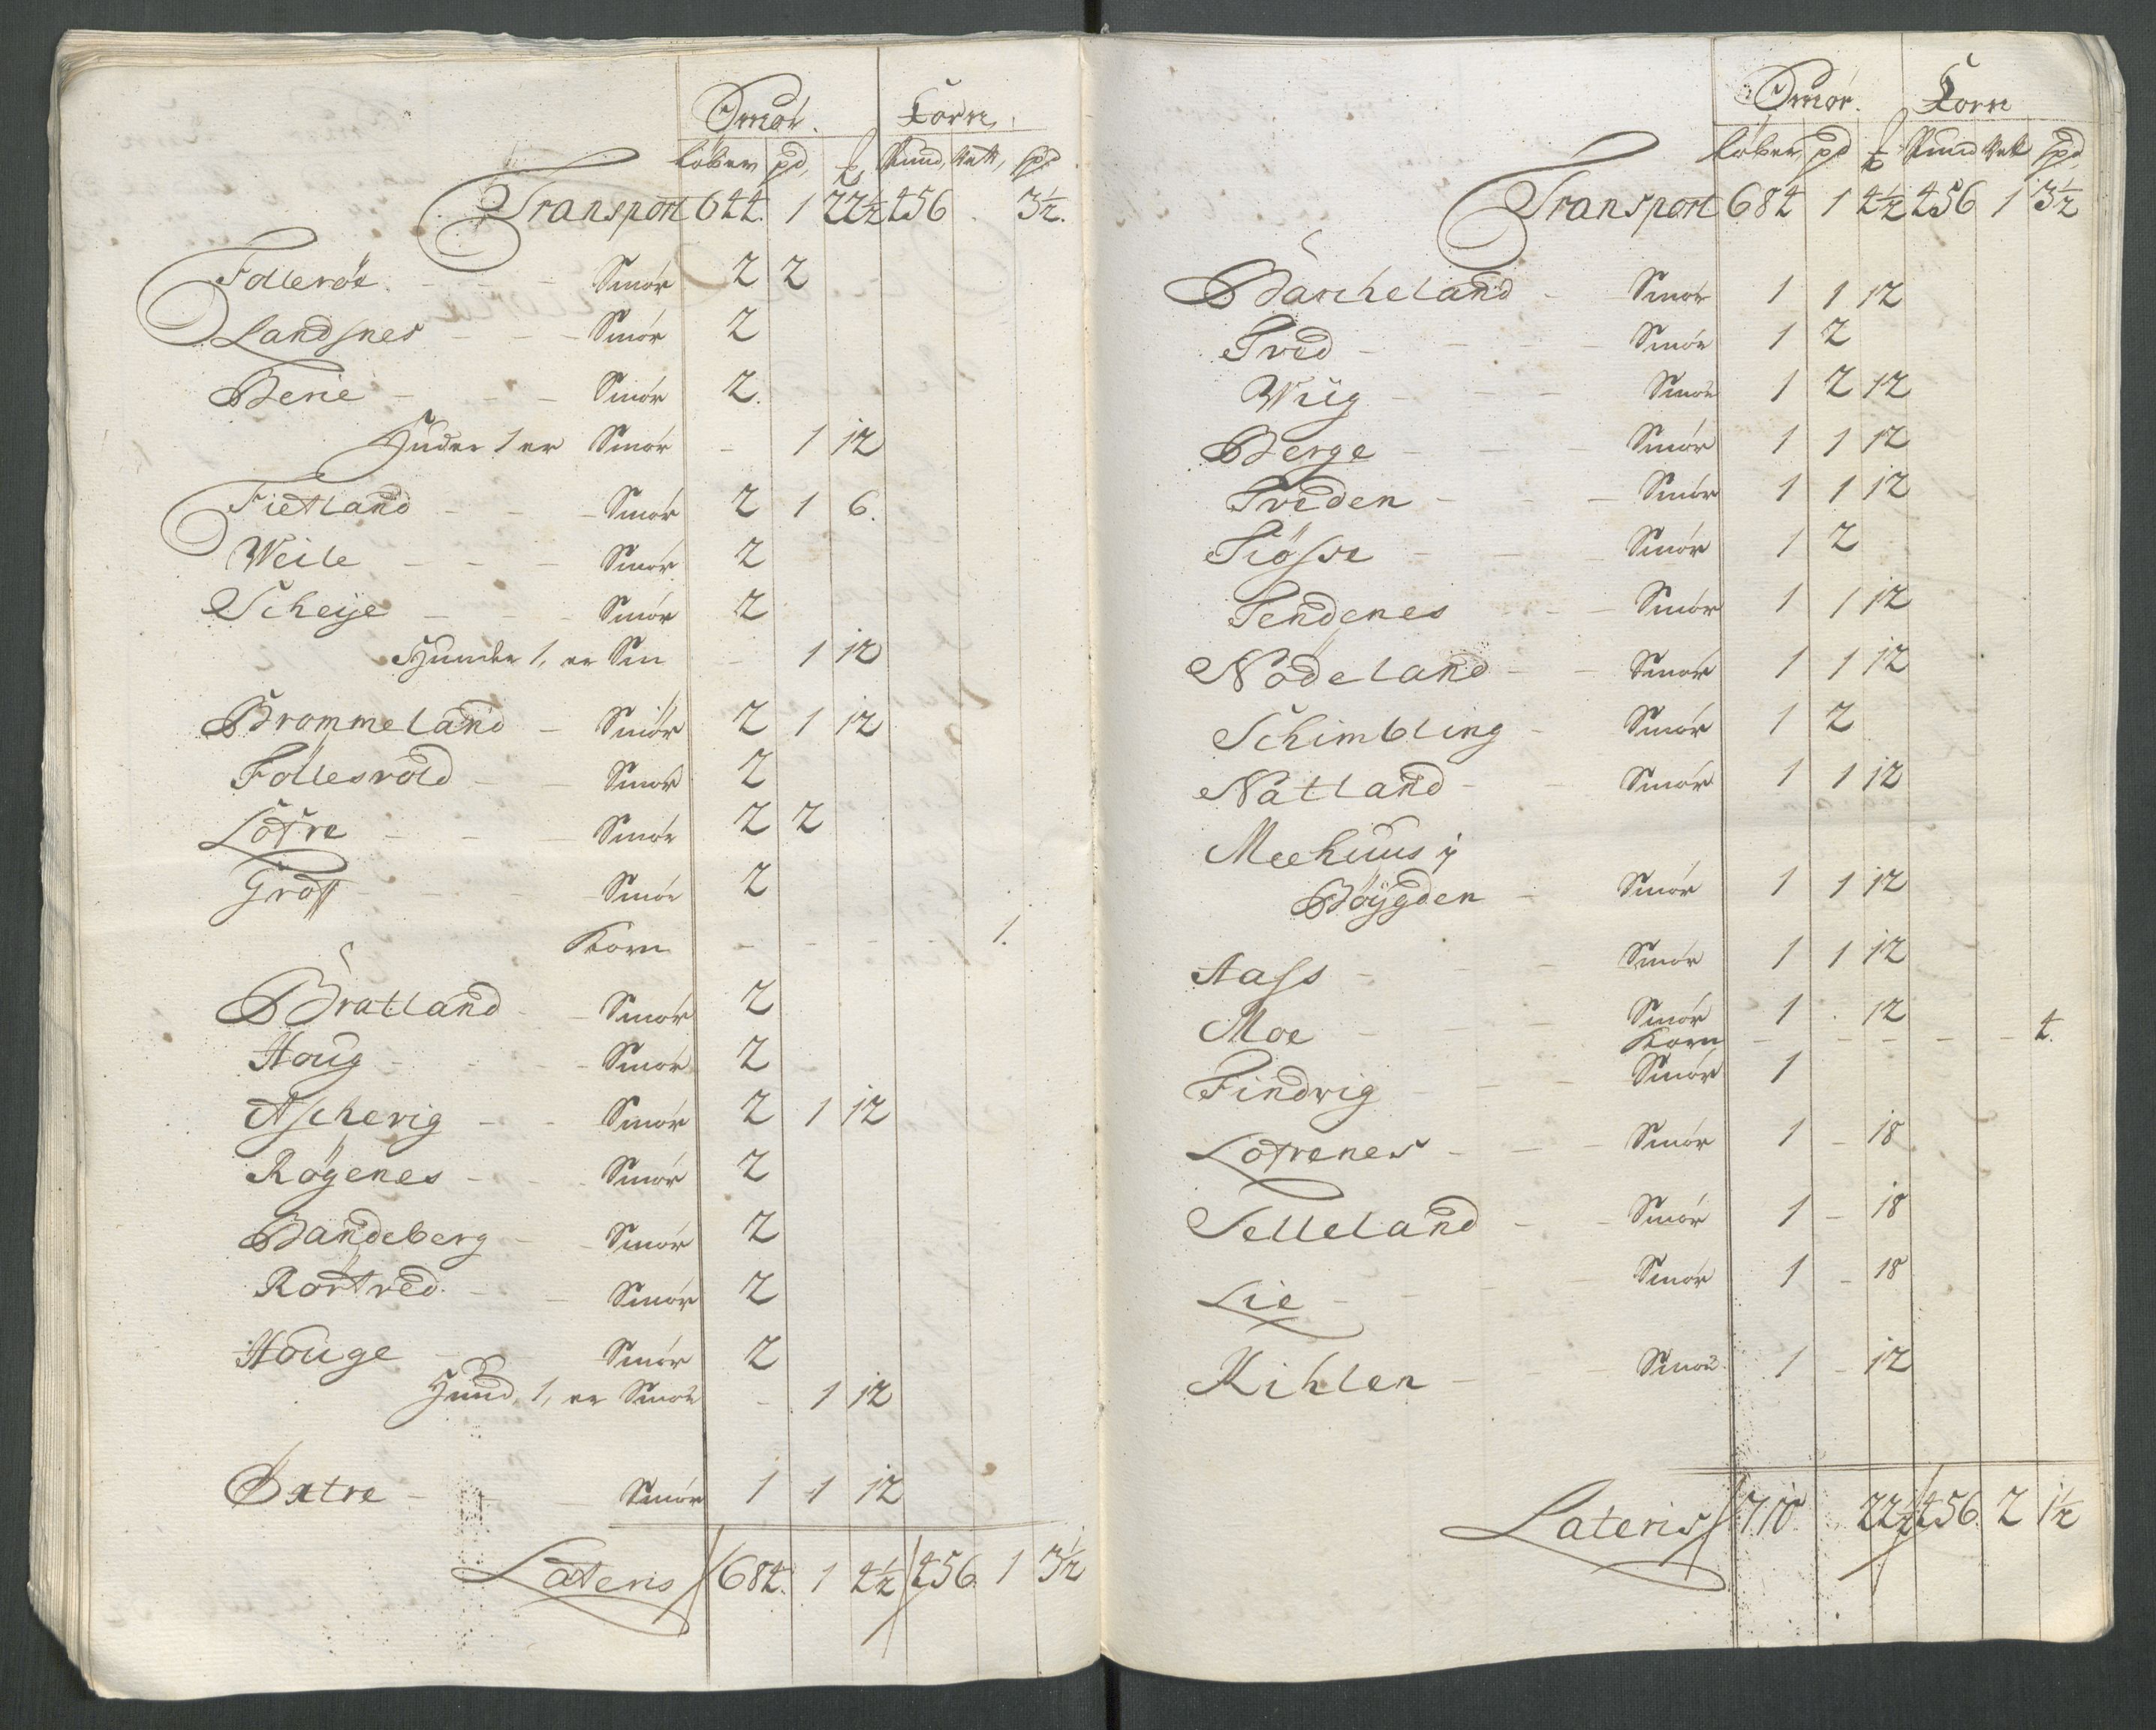 Smör. Korn.
Löber pd, Pund, Vett, spd
Transport 644. 1 22½ 456 . 3½.
Folleröe Smör 2 2
Landsnes Smör 2
Berie Smör 2.
Huder 1 er Smör - 1 12
Fietland Smör 2 1 6.
Weile Smör 2
Scheye Smör 2
Huuder 1, er Sm - 1 12
Brommeland Smör 2 1 12
Föllesvold Smör 2
Lofre Smör 2 2
Groff Smör 2
Korn - - - - 1.
Bratland Smör 2
Houg Smör 2
Ascherig Smör 2 1 12
Rögenes Smör 2
Bandeberg Smör 2
Rörtved Smör 2
Houge Smör 2
Huud, 1, er Smör - 1 12
Smör 1 1 12
Lateris 684. 1 4½ 456 1 3½
Smör. Korn
Löber pd Pund Vett spd
Transport 684 1 4½ 456 1 3½
Barcheland Smör 1 1 12
Tved Smör 1 2
Wiig Smör 1 2 12
Berge Smör 1 1 12
Tveden Smör 1 1 12
Smör 1 2
Tendenes Smör 1 1 12
Nödeland Smör 1 1 12
Schimbling Smör 1 2
Natland Smör 1 1 12
Meehuus i
Böygden Smör 1 1 12
Aass Smör 1 1 12
Moe Smör 1 . 12
Korn - - - - - 4.
Findvig Smör 1
Lofrenes Smör 1 - 18
Selleland Smör 1 - 18
Lie Smör 1 - 18
Kihlen Smör 1 - 12
Lateris 710 . 22½ 456. 2 1½